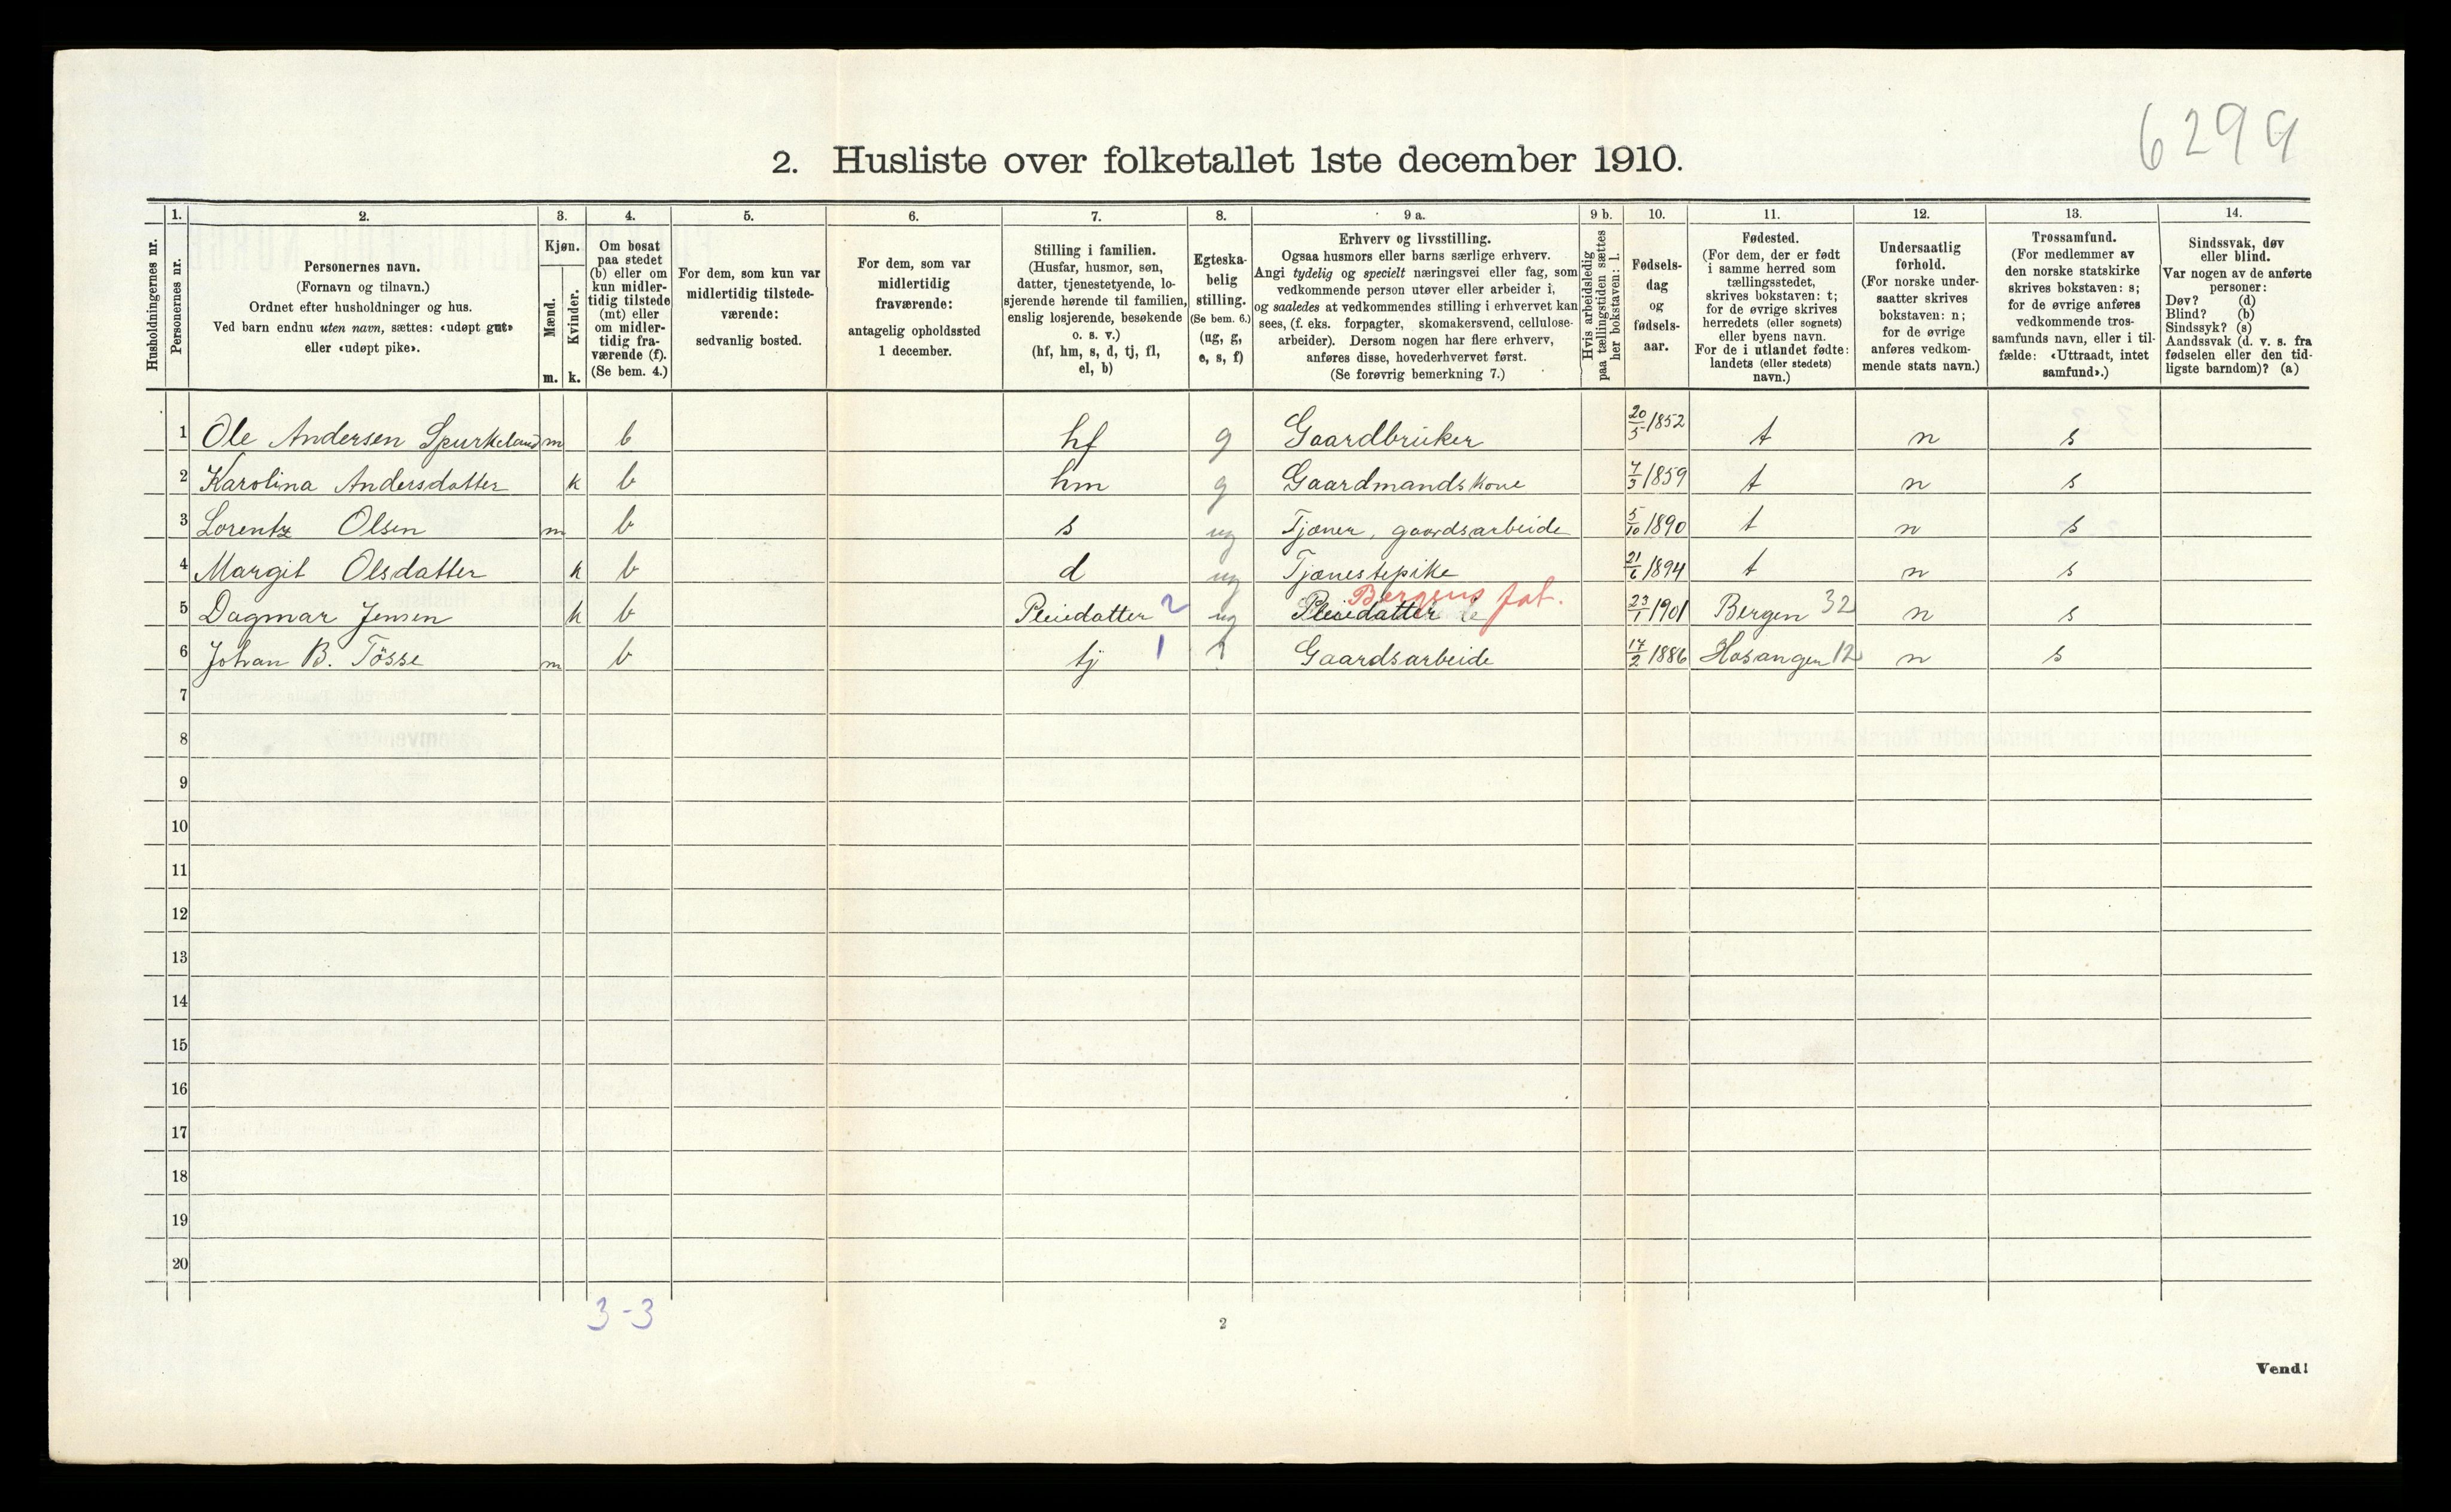 6299
2. Husliste over folketallet 1ste december 1910.
Husholdningernes nr.
1. Personernes nr.
2. Personernes navn. (Fornavn og tilnavn.) Ordnet efter husholdninger og hus. Ved barn endnu uten navn, sættes: «udøpt gut» eller «udøpt pike».
3. Kjøn. Mænd. m. Kvinder. k.
4. Om bosat paa stedet (b) eller om kun midlertidig tilstede (mt) eller om midlertidig fraværende (f). (Se bem. 4.)
5. For dem, som kun var midlertidig tilstedeværende: sedvanlig bosted.
6. For dem, som var midlertidig fraværende: antagelig opholdssted 1 december.
7. Stilling i familien. (Husfar, husmor, søn, datter, tjenestetyende, losjerende hørende til familien, enslig losjerende, besøkende o. s. v.) (hf, hm, s, d, tj, fl, el, b)
8. Egteskabelig stilling. (Se bem. 6.) (ug, g, e, s, f)
9 a. Erhverv og livsstilling. Ogsaa husmors eller barns særlige erhverv. Angi tydelig og specielt næringsvei eller fag, som vedkommende person utøver eller arbeider i, og saaledes at vedkommendes stilling i erhvervet kan sees, (f. eks. forpagter, skomakersvend, cellulosearbeider). Dersom nogen har flere erhverv, anføres disse, hovederhvervet først. (Se forøvrig bemerkning 7.)
9 b. Hvis arbeidsledig paa tællingstiden sættes her bokstaven: l.
10. Fødselsdag og fødselsaar.
11. Fødested. (For dem, der er født i samme herred som tællingsstedet, skrives bokstaven: t; for de øvrige skrives herredets (eller sognets) eller byens navn. For de i utlandet fødte: landets (eller stedets) navn.)
12. Undersaatlig forhold. (For norske undersaatter skrives bokstaven: n; for de øvrige anføres vedkommende stats navn.)
13. Trossamfund. (For medlemmer av den norske statskirke skrives bokstaven: s; for de øvrige anføres vedkommende trossamfunds navn, eller i tilfælde: «Uttraadt, intet samfund».)
14. Sindssvak, døv eller blind. Var nogen av de anførte personer: Døv? (d) Blind? (b) Sindssyk? (s) Aandssvak (d. v. s. fra fødselen eller den tidligste barndom)? (a)
1 Ole Andersen Spurkeland m b hf g Gaardbruker 20/5 1852 t n s
2 Karolina Andersdatter k b hm g Gaardmandskone 7/3 1859 t n s
3 Lorentz Olsen m b s ug Tjæner, gaardsarbeide 5/10 1890 t n s
4 Margit Olsdatter k b d ug Tjænestepike 21/6 1894 t n s
5 Dagmar Jensen k b Pleiedatter 2 ug Pleiedatter Bergens fat. 23/1 1901 Bergen 32 n s
6 Johan B. Tösse m b tj 1 Gaardsarbeide 17/2 1886 Hosanger 12 n s
7
8
9
10
11
12
13
14
15
16
17
18
19
20
3-3
2
Vend!